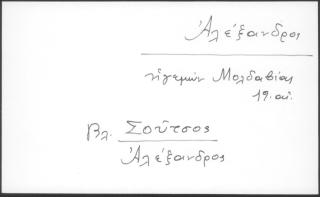 Ἀλέξανδρος
ἡγεμών Μολδαβίας
19. αἰ.
Βλ. Σοῦτσος
Ἀλέξανδρος